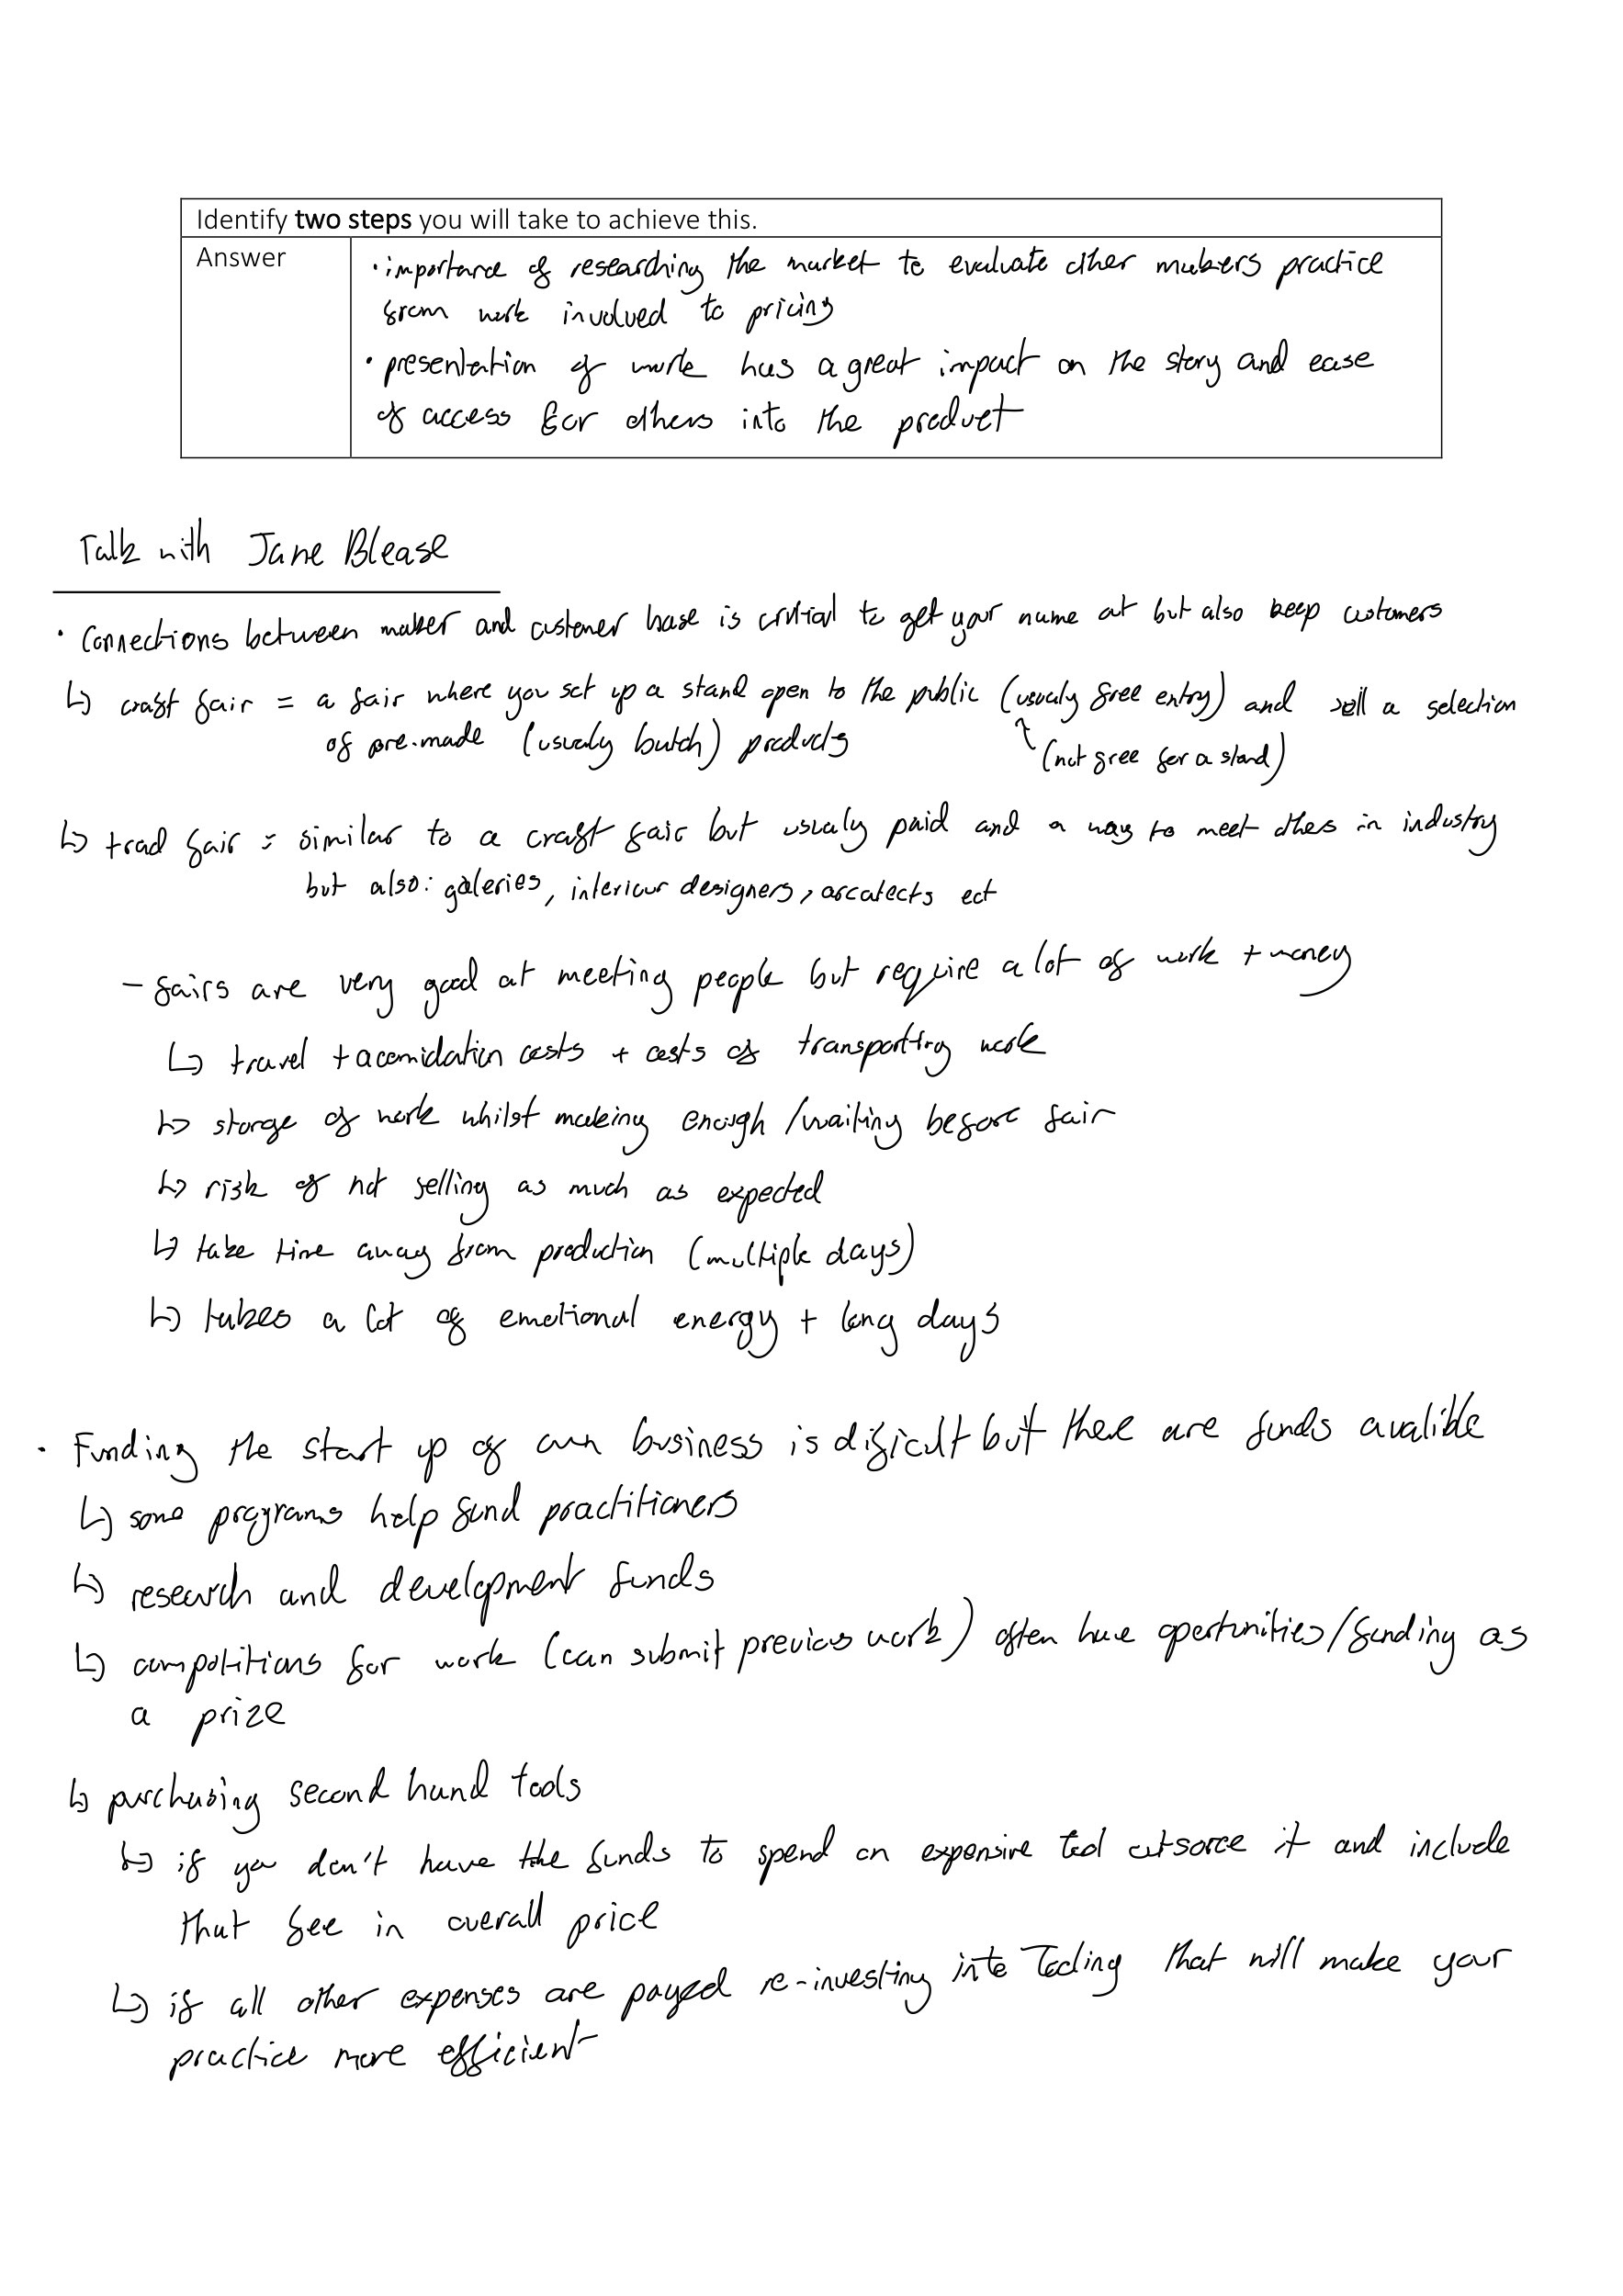 Identify two steps you will take to achieve this.
Answer
· importance of researching the market to evaluate other makers practice
from work involved to pricing
· presentation of work has a great impact on the story and ease
of access for others into the product
Talk with Jane Blease
· Connections between maker and customer base is critial to get your name at but also keep customers
↳ craft fair = a fair where you set up a stand open to the public (usualy free entry) and sell a selection
of pre-made (usualy batch) products
↑ (not free for a stand)
↳ trad fair = similar to a craft fair but usualy paid and a way to meet others in industry
but also: galeries, interiour designers, arcatects ect
- fairs are very good at meeting people but require a lot of work + money
↳ travel + acomidation costs + costs of transporting work
↳ storge of work whilst making enough / waiting before fair
↳ risk of not selling as much as expected
↳ take time away from production (multiple days)
↳ takes a lot of emotional energy + long days
· Funding the start up of own business is dificult but there are funds avalible
↳ some programs help fund practitioners
↳ research and development funds
↳ compotitions for work (can submit previous work) often have opertunities/funding as
a prize
↳ purchasing second hand tools
↳ if you don't have the funds to spend on expensive tool outsorce it and include
that fee in overall price
↳ if all other expenses are payed re-investing into Tooling that will make your
practice more efficient